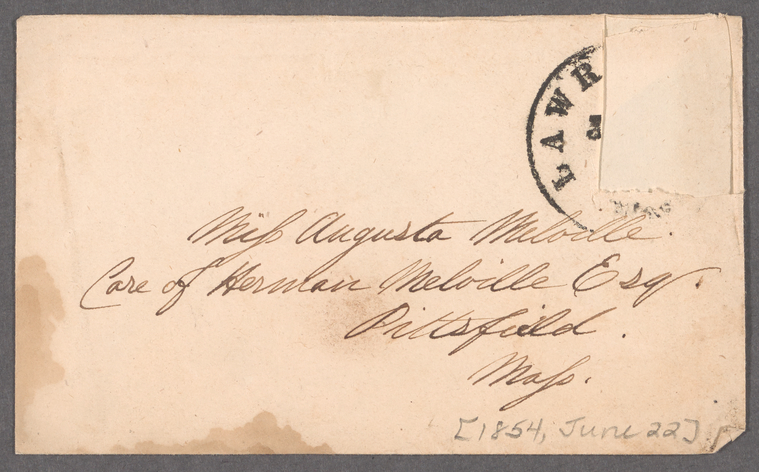 LAWR
Miss Augusta Melville.
Care of Herman Melville Esq.
Pittsfield.
Mass.
[1854, June 22]